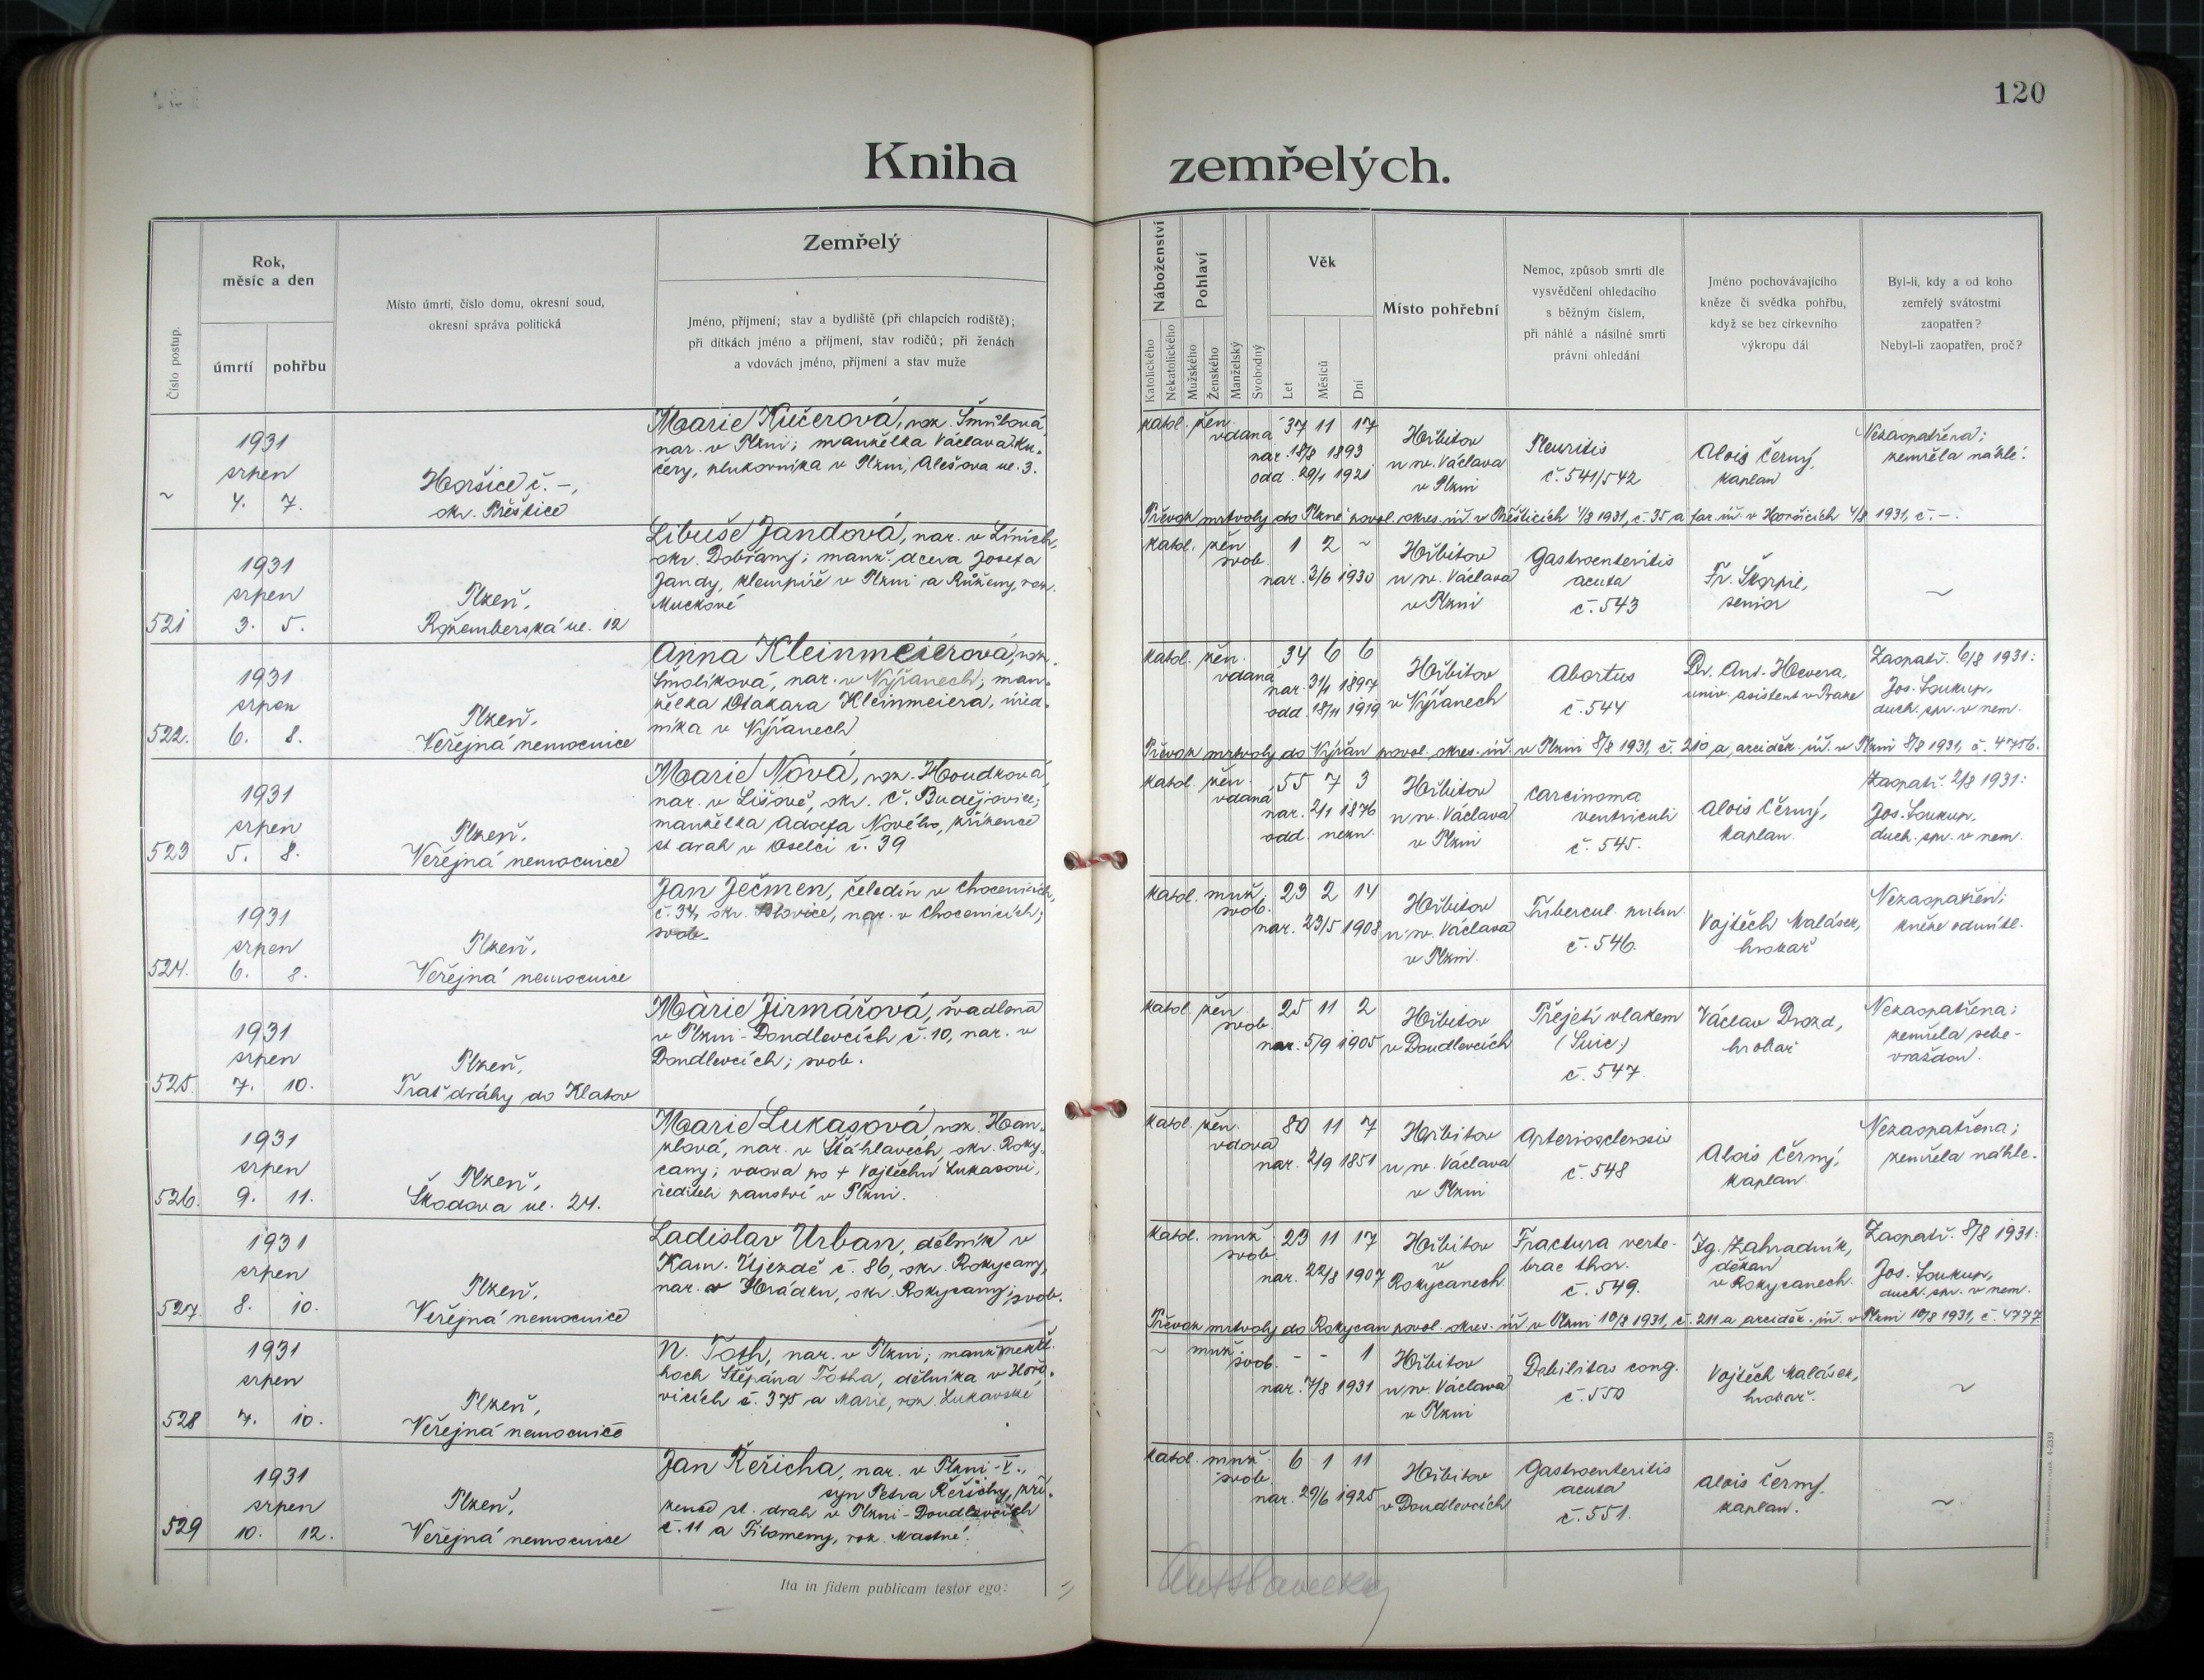 120
Kniha zemřelých.
Číslo postup.
Rok,
měsíc a den
úmrtí
pohřbu
Místo úmrtí, číslo domu, okresní soud,
okresní správa politická
Zemřelý
Jméno, příjmení; stav a bydliště (při chlapcích rodiště);
při dítkách jméno a příjmení, stav rodičů; při ženách
a vdovách jméno, příjmení a stav muže
Náboženství
Katolického
Nekatolického
Pohlaví
Mužského
Ženského
Manželský
Svobodný
Věk
Let
Měsíců
Dní
Místo pohřební
Nemoc, způsob smrti dle
vysvědčení ohledacího
s běžným číslem,
při náhlé a násilné smrti
právní ohledání
Jméno pochovávajícího
kněze či svědka pohřbu,
když se bez církevního
výkropu dál
Byl-li, kdy a od koho
zemřelý svátostmi
zaopatřen?
Nebyl-li zaopatřen, proč?
~
1931
srpen
4. 7.
Horšice č. –,
okr. Přeštice
Marie Kučerová, roz.
nar. v Plzni; manželka Václava Ku-
čery, plukovníka v Plzni, Alešova ul. 3.
katol. žen. vdaná 37 11 17
nar. 18/8 1893
odd. 29/1 1921
Hřbitov
u sv. Václava
v Plzni
Pleuritis
č. 541/542
Alois Černý,
kaplan
Nezaopatřena;
zemřela náhle.
Převoz mrtvoly do Plzně povol. okres. úř. v Přešticích 4/8 1931, č. 35 a far. úř. v Horšicích 4/8 1931, č. –.
521
1931
srpen
3. 5.
Plzeň,
Rožemberská ul. 12
Libuše Jandová, nar. v Líních,
okr. Dobřany; manž. dcera Josefa
Jandy, klempíře v Plzni a Růženy, roz.
Muckové
katol. žen. svob. 1 2 ~
nar. 3/6 1930
Hřbitov
u sv. Václava
v Plzni
Gastroenteritis
acuta
č. 543
Fr. Škorpil,
senior
~
522.
1931
srpen
6. 8.
Plzeň,
Veřejná nemocnice
Anna Kleinmeierová, roz.
Smolíková, nar. v Nýřanech; man-
želka Otakara Kleinmeiera, úřed-
níka v Nýřanech
katol. žen. vdaná 34 6 6
nar. 31/1 1897
odd. 18/11 1919
Hřbitov
v Nýřanech
Abortus
č. 544
Dr. Ant. Hevera,
univ. asistent v Praze
Zaopatř. 6/8 1931:
Jos. Soukup,
duch. spr. v nem.
Převoz mrtvoly do Nýřan povol. okres. úř. v Plzni 8/8 1931, č. 210 a arciděk. úř. v Plzni 8/8 1931, č. 4756.
523
1931
srpen
5. 8.
Plzeň,
Veřejná nemocnice
Marie Nová, roz. Houdková,
nar. v Lišově, okr. Č. Budějovice;
manželka Adolfa Nového, zřízence
st. drah v Oselci č. 39
katol. žen. vdaná 55 7 3
nar. 2/1 1876
odd. nezn.
Hřbitov
u sv. Václava
v Plzni
Carcinoma
ventriculi
č. 545.
Alois Černý,
kaplan.
Zaopatř. 2/8 1931:
Jos. Soukup,
duch. spr. v nem.
524.
1931
srpen
6. 8.
Plzeň,
Veřejná nemocnice
Jan Ječmen, čeledín v Chocenicích,
č. 34, okr. Blovice, nar. v Chocenicích;
svob.
katol. muž. svob. 23 2 14
nar. 23/5 1908
Hřbitov
u sv. Václava
v Plzni.
Tubercul. pulm.
č. 546.
Vojtěch Kalásek,
hrobař
Nezaopatřen;
kněze odmítl.
525.
1931
srpen
7. 10.
Plzeň,
Trať dráhy do Klatov
Marie Jirmářová, švadlena
v Plzni-Doudlevcích č. 10, nar. v
Doudlevcích; svob.
katol. žen. svob. 25 11 2
nar. 5/9 1905
Hřbitov
v Doudlevcích
Přejetí vlakem
(Suic.)
č. 547.
Václav Drozd,
hrobař
Nezaopatřena;
zemřela sebe-
vraždou.
526.
1931
srpen
9. 11.
Plzeň,
Škodova ul. 24.
Marie Lukasová, roz. Han-
zlová, nar. v Šťáhlavech, okr. Roky-
cany; vdova po + Vojtěchu Lukasovi,
řediteli panství v Plzni.
katol. žen. vdova 80 11 7
nar. 2/9 1851
Hřbitov
u sv. Václava
v Plzni
Arteriosclerosis
č. 548
Alois Černý,
kaplan.
Nezaopatřena;
zemřela náhle.
527.
1931
srpen
8. 10.
Plzeň,
Veřejná nemocnice
Ladislav Urban, dělník v
Kam. Újezdě č. 86, okr. Rokycany,
nar. v Hrádku, okr. Rokycany; svob.
katol. muž. svob. 23 11 17
nar. 22/8 1907
Hřbitov
v
Rokycanech
Fractura verte-
brae thor.
č. 549.
Ig. Zahradník,
děkan
v Rokycanech.
Zaopatř. 8/8 1931:
Jos. Soukup,
duch. spr. v nem.
Převoz mrtvoly do Rokycan povol. okres. úř. v Plzni 10/8 1931, č. 211 a arciděk. úř. v Plzni 10/8 1931, č. 4777
528
1931
srpen
7. 10.
Plzeň,
Veřejná nemocnice
N. Toth, nar. v Plzni; manž. nekřt.
hoch Štěpána Totha, dělníka v Hořo-
vicích č. 375 a Marie, roz. Lukavské
~ muž. svob. - - 1
nar. 7/8 1931
Hřbitov
u sv. Václava
v Plzni
Debilitas cong.
č. 550
Vojtěch Kalásek,
hrobař.
~
529
1931
srpen
10. 12.
Plzeň,
Veřejná nemocnice
Jan Řeřicha, nar. v Plzni-V.,
syn Petra Řeřichy, zří-
zence st. drah v Plzni-Doudlevcích
č. 11 a Filomeny, roz. Mastné.
katol. muž. svob. 6 1 11
nar. 29/6 1925
Hřbitov
v Doudlevcích
Gastroenteritis
acuta
č. 551.
Alois Černý,
kaplan.
~
Ita in fidem publicam testor ego: